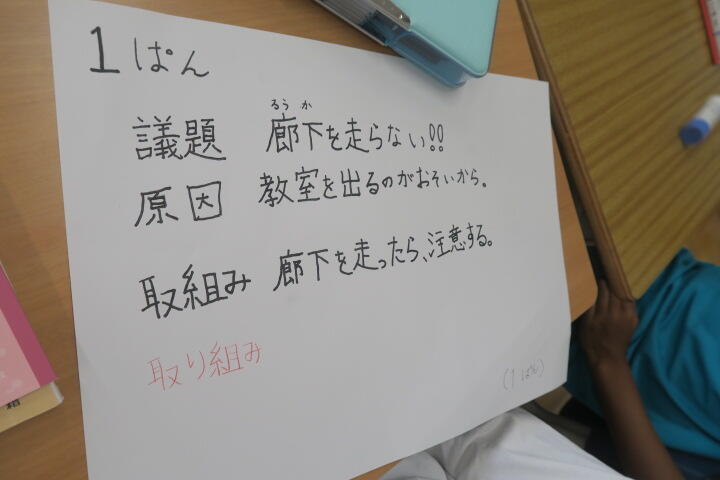 1 ぱん
議題 廊下を走らない!!
るうか
原因 教室を出るのがおそいから。
取組み 廊下を走ったら、注意する。
取り組み
(1 ぱん)